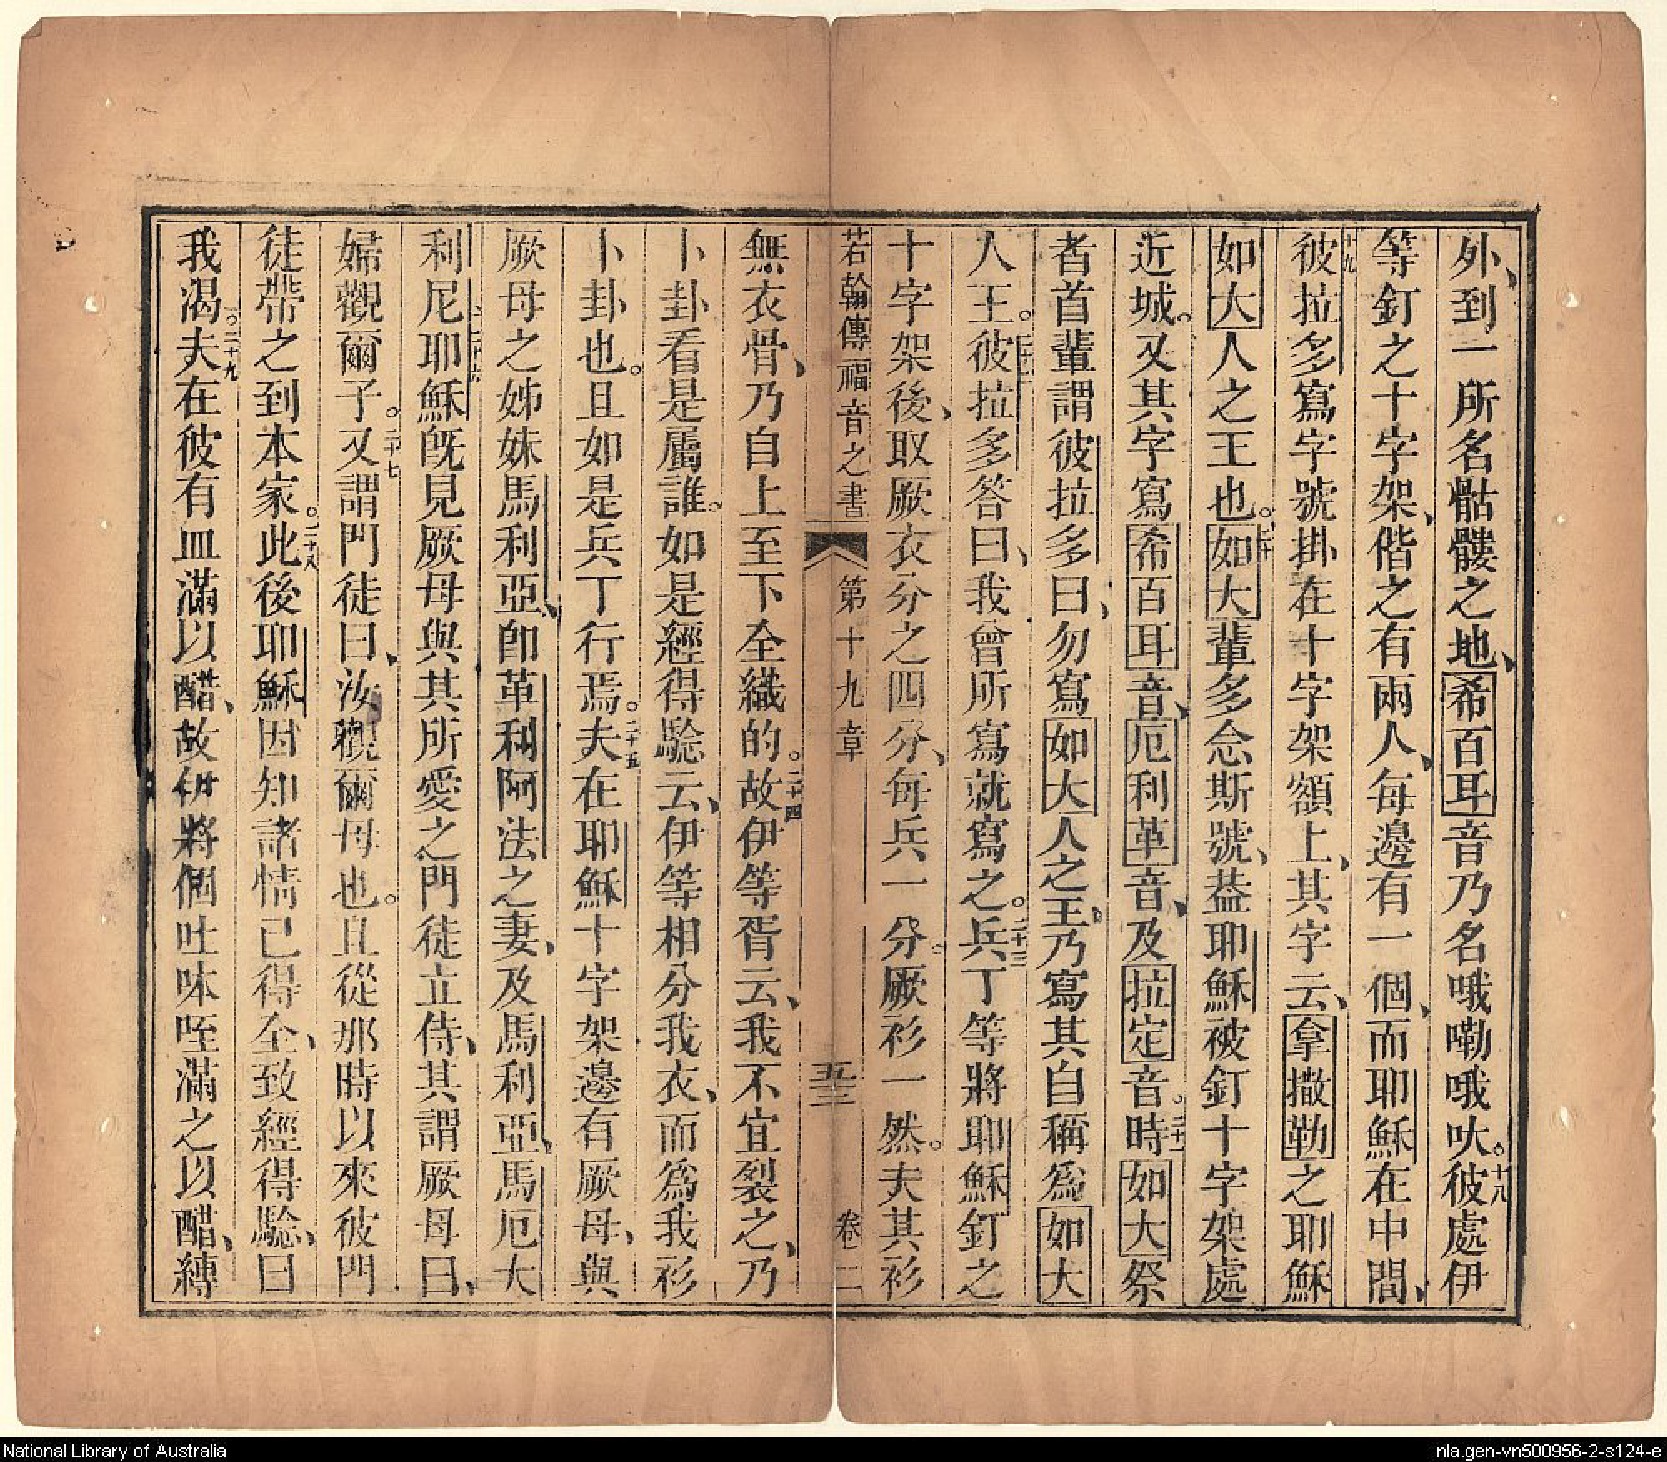 外、到一所名骷髏之地、希百耳音乃名哦嘞哦吙。十八彼處伊
等釘之十字架、偕之有兩人、每邊有一個、而耶穌在中間、
十九彼拉多寫字號掛在十字架額上、其字云、拿撒勒之耶穌
如大人之王也。二十如大輩多念斯號、葢耶穌被釘十字架處
近城。又其字寫希百耳音、厄利革音、及拉定音。二十一時如大祭
者首輩謂彼拉多曰、勿寫如大人之王、乃寫其自稱為如大
人王。二十二彼拉多答曰、我曾所寫就寫之。二十三兵丁等將耶穌釘之
十字架後、取厥衣分之四分、每兵一分。厥衫一然。夫其衫
若翰傳福音之書 第十九章 五十三 卷二
無衣骨、乃自上至下全織的。二十四故伊等胥云、我不宜裂之、乃
卜卦看是屬誰。如是經得騐云、伊等相分我衣、而為我衫
卜卦也。且如是兵丁行焉。二十五夫在耶穌十字架邊有厥母、與
厥母之姊妹馬利亞、即革利阿法之妻、及馬利亞、馬厄大
利尼。二十六耶穌既見厥母與其所愛之門徒立侍、其謂厥母曰、
婦觀爾子。二十七又謂門徒曰、汝觀爾母也。且從那時以來彼門
徒帶之到本家。二十八此後耶穌因知諸情已得全、致經得騐、曰
我渴。二十九夫在彼有皿滿以醋、故伊將個吐味咥滿之以醋、縳
National Library of Australia
nla.gen-vn500956-2-s124-e